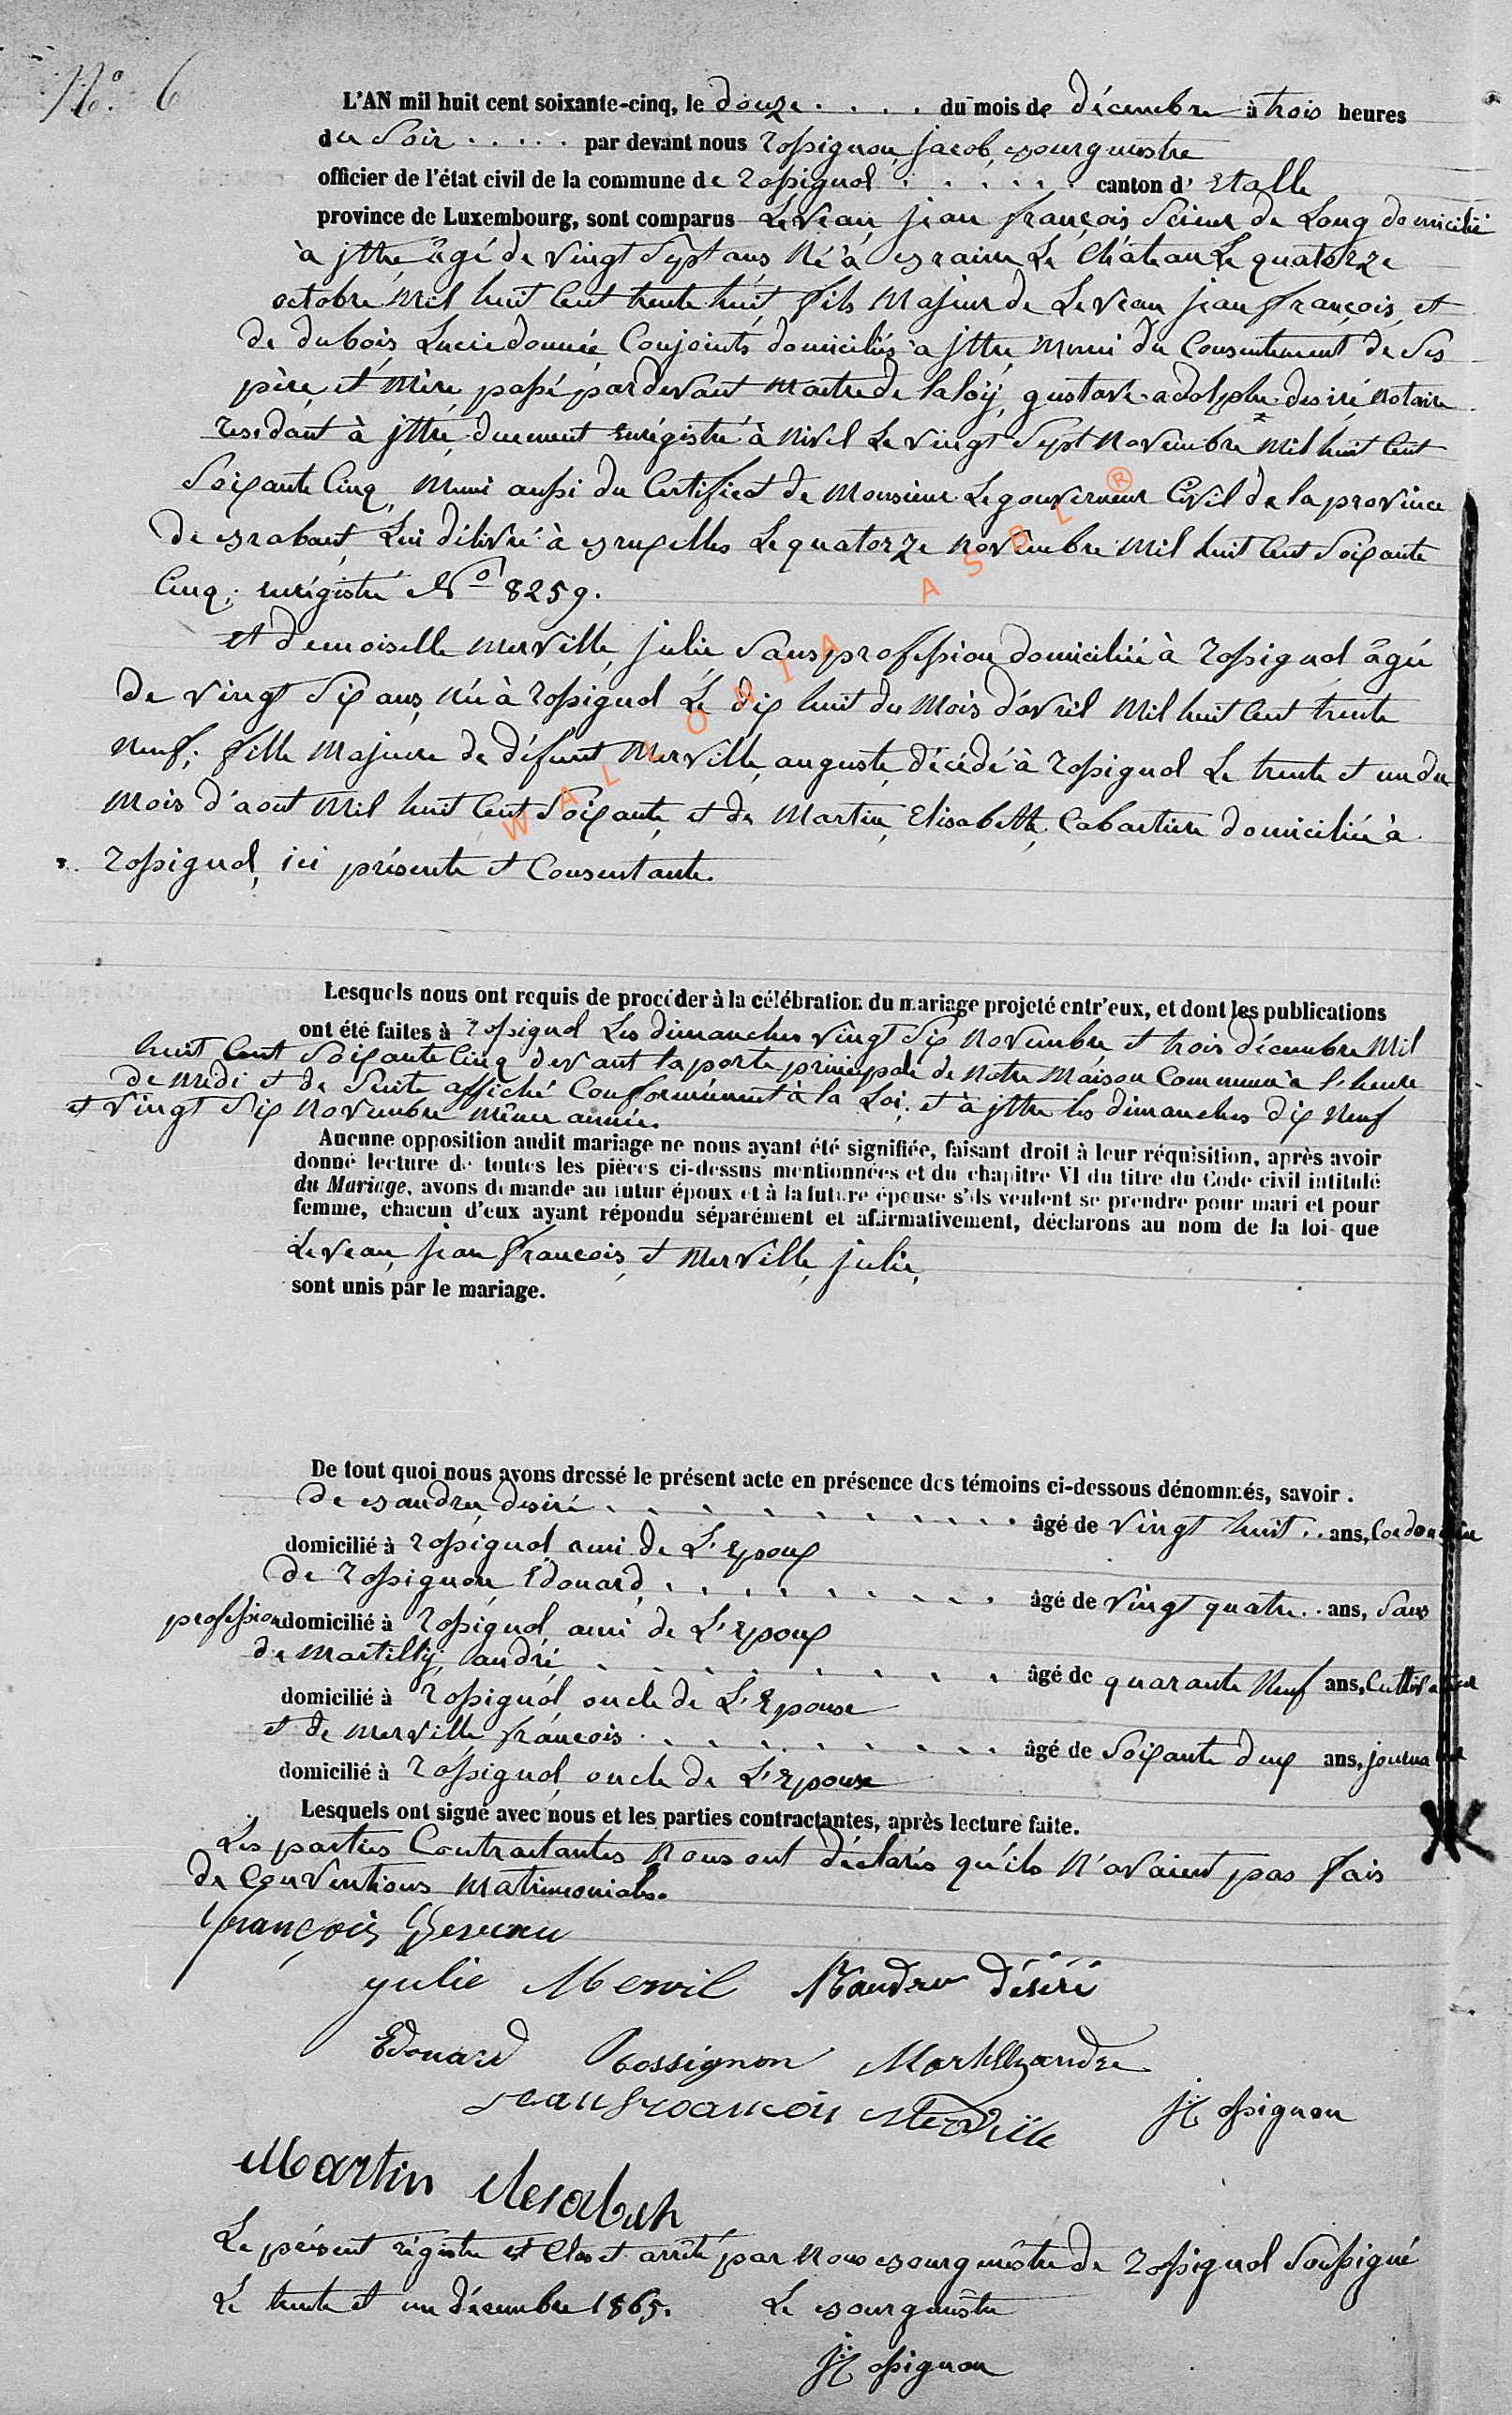 N° 6
L'AN mil huit cent soixante-cinq, le douze . . . . du mois de décembre à trois heures
du Soir . . . . . par devant nous Rossignon, jacob, Bourgmestre
officier de l'état civil de la commune de Rossignol . . . . . . canton d' Etalle
province de Luxembourg, sont comparus Leveau, jean françois Scieur de Long domicilié
à jttre âgé de vingt Sept ans, Né à Braine Le Château Le quatorze
octobre Mil huit Cent trente huit, fils Majeur de Leveau, jean françois, et
de dubois, Lucie donnée Conjoints domiciliés à jttre, Muni du Consentement de Ses
père et Mère, passé pardevant Maitre de laloÿ, gustave adolphe desiré, Notaire
residant à jttre, duement Enrégistré à Nivel Le vingt Sept Novembre Mil huit Cent
Soixante Cinq, Muni aussi du Certificat de Monsieur Le gouverneur Civil de la province
de Brabant, Lui délivré à Bruxelles Le quatorze Novembre Mil huit Cent Soixante
Cinq; enrégistré N° 8259.
et demoiselle Merville, julie Sans profession domiciliée à Rossignol âgée
de vingt Six ans, Née à Rossignol Le dix huit du Mois d'avril Mil huit Cent trente
Neuf; fille Majeure de défunt Merville, auguste, décédé à Rossignol Le trente et un du
Mois d'aout Mil huit Cent Soixante, et de Martin, Elisabeth, Cabartiere domiciliée à
Rossignol, ici présente et Consentante.
WALLONIA ASBL ®
Lesquels nous ont requis de procéder à la célébration du mariage projeté entr'eux, et dont les publications
ont été faites à Rossignol Les dimanches vingt Six Novembre et trois décembre Mil
huit Cent Soixante Cinq devant la porte principale de Notre Maison Commune à l'heure
de Midi et de Suite affiché Conformément à la Loi; et à jttre les dimanches dix Neuf
et vingt Six Novembre même année.
Aucune opposition audit mariage ne nous ayant été signifiée, faisant droit à leur réquisition, après avoir
donné lecture de toutes les pièces ci-dessus mentionnées et du chapitre VI du titre du Code civil intitulé
du Mariage, avons demande au futur époux et à la future épouse s'ils veulent se prendre pour mari et pour
femme, chacun d'eux ayant répondu séparément et affirmativement, déclarons au nom de la loi que
Leveau, jean françois, et Merville, julie,
sont unis par le mariage.
De tout quoi nous avons dressé le présent acte en présence des témoins ci-dessous dénommés, savoir .
de Baudru, desiré . . . . . . . . . . âgé de vingt huit . . ans, Cordonnier
domicilié à Rossignol ami de L'Epoux
de Rossignon, Edouard, . . . . . . . . âgé de vingt quatre . . ans, Sans
profession domicilié à Rossignol ami de L'Epoux
de Martilly, andré, . . . . . . . . âgé de quarante Neuf ans, Cultivateur
domicilié à Rossignol oncle de L'Epouse
et de Merville, françois . . . . . . . . . âgé de Soixante deux ans, journalier
domicilié à Rossignol, oncle de L'Epouse
Lesquels ont signé avec nous et les parties contractantes, après lecture faite.
Les parties Contractantes Nous ont déclarés qu'ils N'avaient pas fais
de Conventions Matrimoniales.
françois Leveau
yulie Mervil Baudru désiré
Edouard Rossignon Martillyandre
jeanfrancois Merville JRossignon
Martin
Le présent régistre est Clos et arrêté par Nous Bourgmestre de Rossignol Soussigné
Le trente et un décembre 1865. Le Bourgmestre
JRossignon